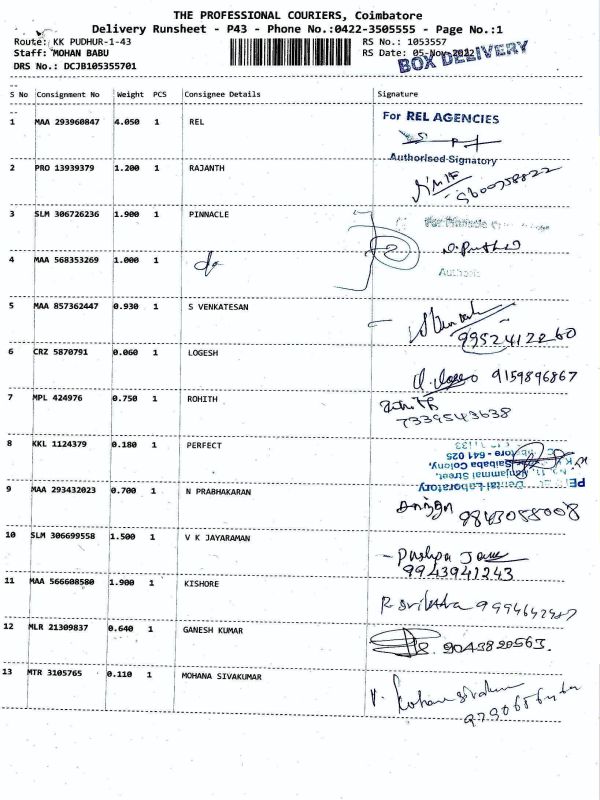 THE PROFESSIONAL COURIERS, Coimbatore
Delivery Runsheet - P43 - Phone No.:0422-3505555 - Page No.:1
Route: KK PUDHUR-1-43 RS No.: 1053557
Staff: MOHAN BABU RS Date: 05-Nov-2022
DRS No.: DCJB105355701 BOX DELIVERY
S No Consignment No Weight PCS Consignee Details Signature
1 MAA 293960847 4.050 1 REL For REL AGENCIES
Authorised Signatory
2 PRO 13939379 1.200 1 RAJANTH 9600758822
3 SLM 306726236 1.900 1 PINNACLE For Pinnacle
4 MAA 568353269 1.000 1
5 MAA 857362447 0.930 1 S VENKATESAN
9952412260
6 CRZ 5870791 0.060 1 LOGESH
9159896867
7 MPL 424976 0.750 1 ROHITH
7339543638
8 KKL 1124379 0.180 1 PERFECT
641 025
Saibaba Colony,
Dental Laboratory
9 MAA 293432023 0.700 1 N PRABHAKARAN
9843088008
10 SLM 306699558 1.500 1 V K JAYARAMAN
9943941243
11 MAA 566608580 1.900 1 KISHORE
12 MLR 21309837 0.640 1 GANESH KUMAR 9043820563.
13 MTR 3105765 0.110 1 MOHANA SIVAKUMAR